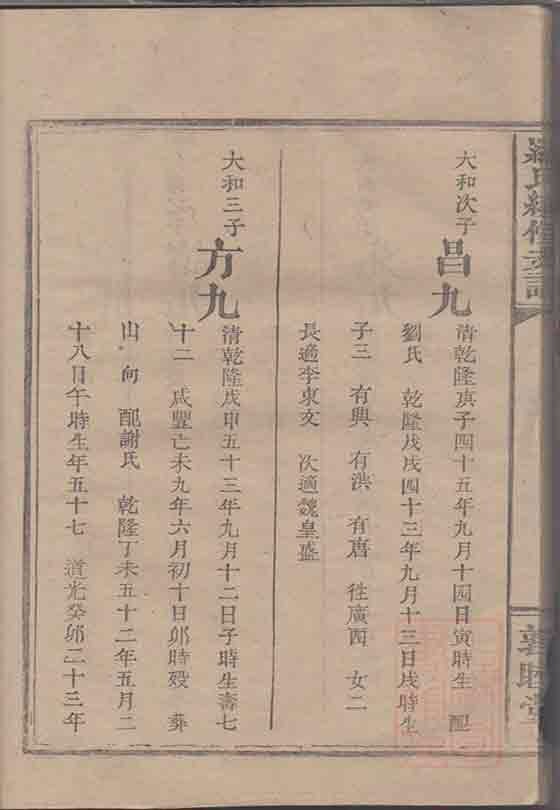 羅氏續修支譜
敦睦堂
大和次子
昌九
清乾隆庚子四十五年九月十四日寅時生 配
劉氏 乾隆戊戌四十三年九月十三日戌時生
子三 有興 有洪 有唐 徃廣西 女二
長適李東文 次適魏皇盛
大和三子
方九
清乾隆戊申五十三年九月十二日子時生壽七
十二 咸豐己未九年六月初十日卯時殁 葬
山 向 配謝氏 乾隆丁未五十二年五月二
十八日午時生年五十七 道光癸卯二十三年